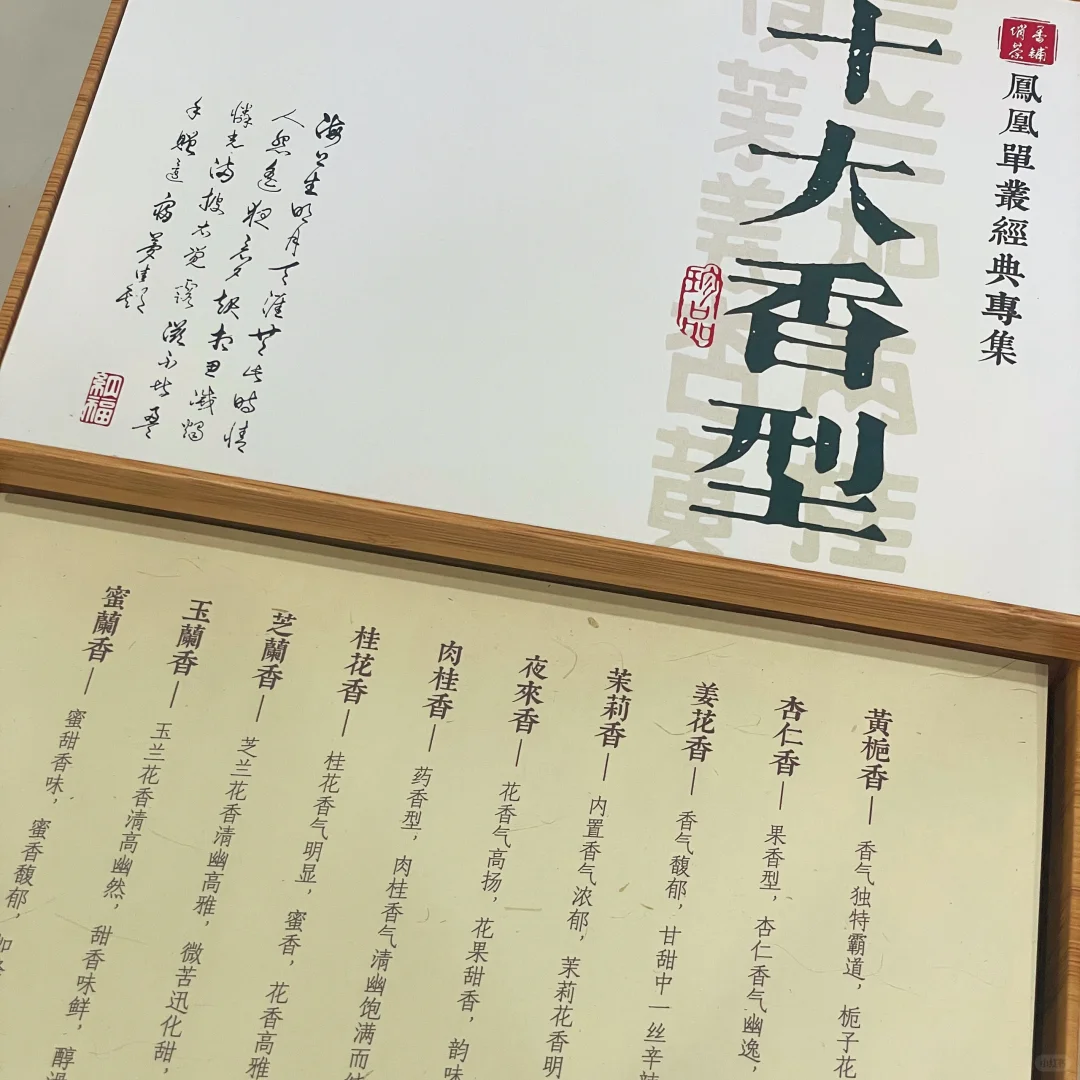 鳳凰單叢經典專集
十大香型
珍品
海上生明月天涯共此時情
人怨遙夜竟夕起相思滅燭
憐光滿披衣覺露滋不堪盈
手贈還寢夢佳期
納福
黃梔香—香气独特霸道，栀子花
杏仁香—果香型，杏仁香气幽逸，
姜花香—香气馥郁，甘甜中一丝辛辣
茉莉香—内置香气浓郁，茉莉花香明
夜來香—花香气高扬，花果甜香，韵味
肉桂香—药香型，肉桂香气清幽饱满而
桂花香—桂花香气明显，蜜香，花香高雅
芝蘭香—芝兰花香清幽高雅，微苦迅化甜，
玉蘭香—玉兰花香清高幽然，甜香味鲜，醇
蜜蘭香—蜜甜香味，蜜香馥郁，